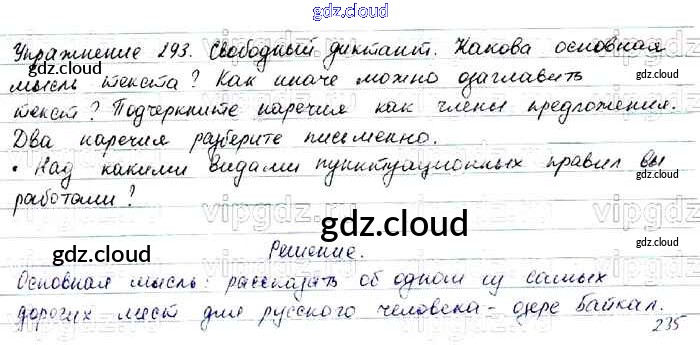 gdz.cloud
Упражнение 293. Свободный диктант. Какова основная
gdz.cloud gdz.cloud
мысль текста? Как иначе можно озаглавить
текст? Подчеркните наречия как члены предложения.
Два наречия разберите письменно.
• Над какими видами пунктуационных правил вы
работали?
gdz.cloud
gdz.cloud gdz.cloud
Решение.
Основная мысль: рассказать об одном из самых
дорогих мест для русского человека - озере Байкал.
235
gdz.cloud